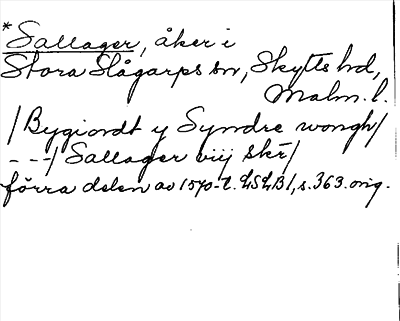 *Sallager, åker i
Stora Slågarps sn, Skytts hd,
Malm. l.
/Bygiordt y Syndre wongh/
---/Sallager viij skr/
förra delen av 1570-t. LSLB1, s. 363. orig.